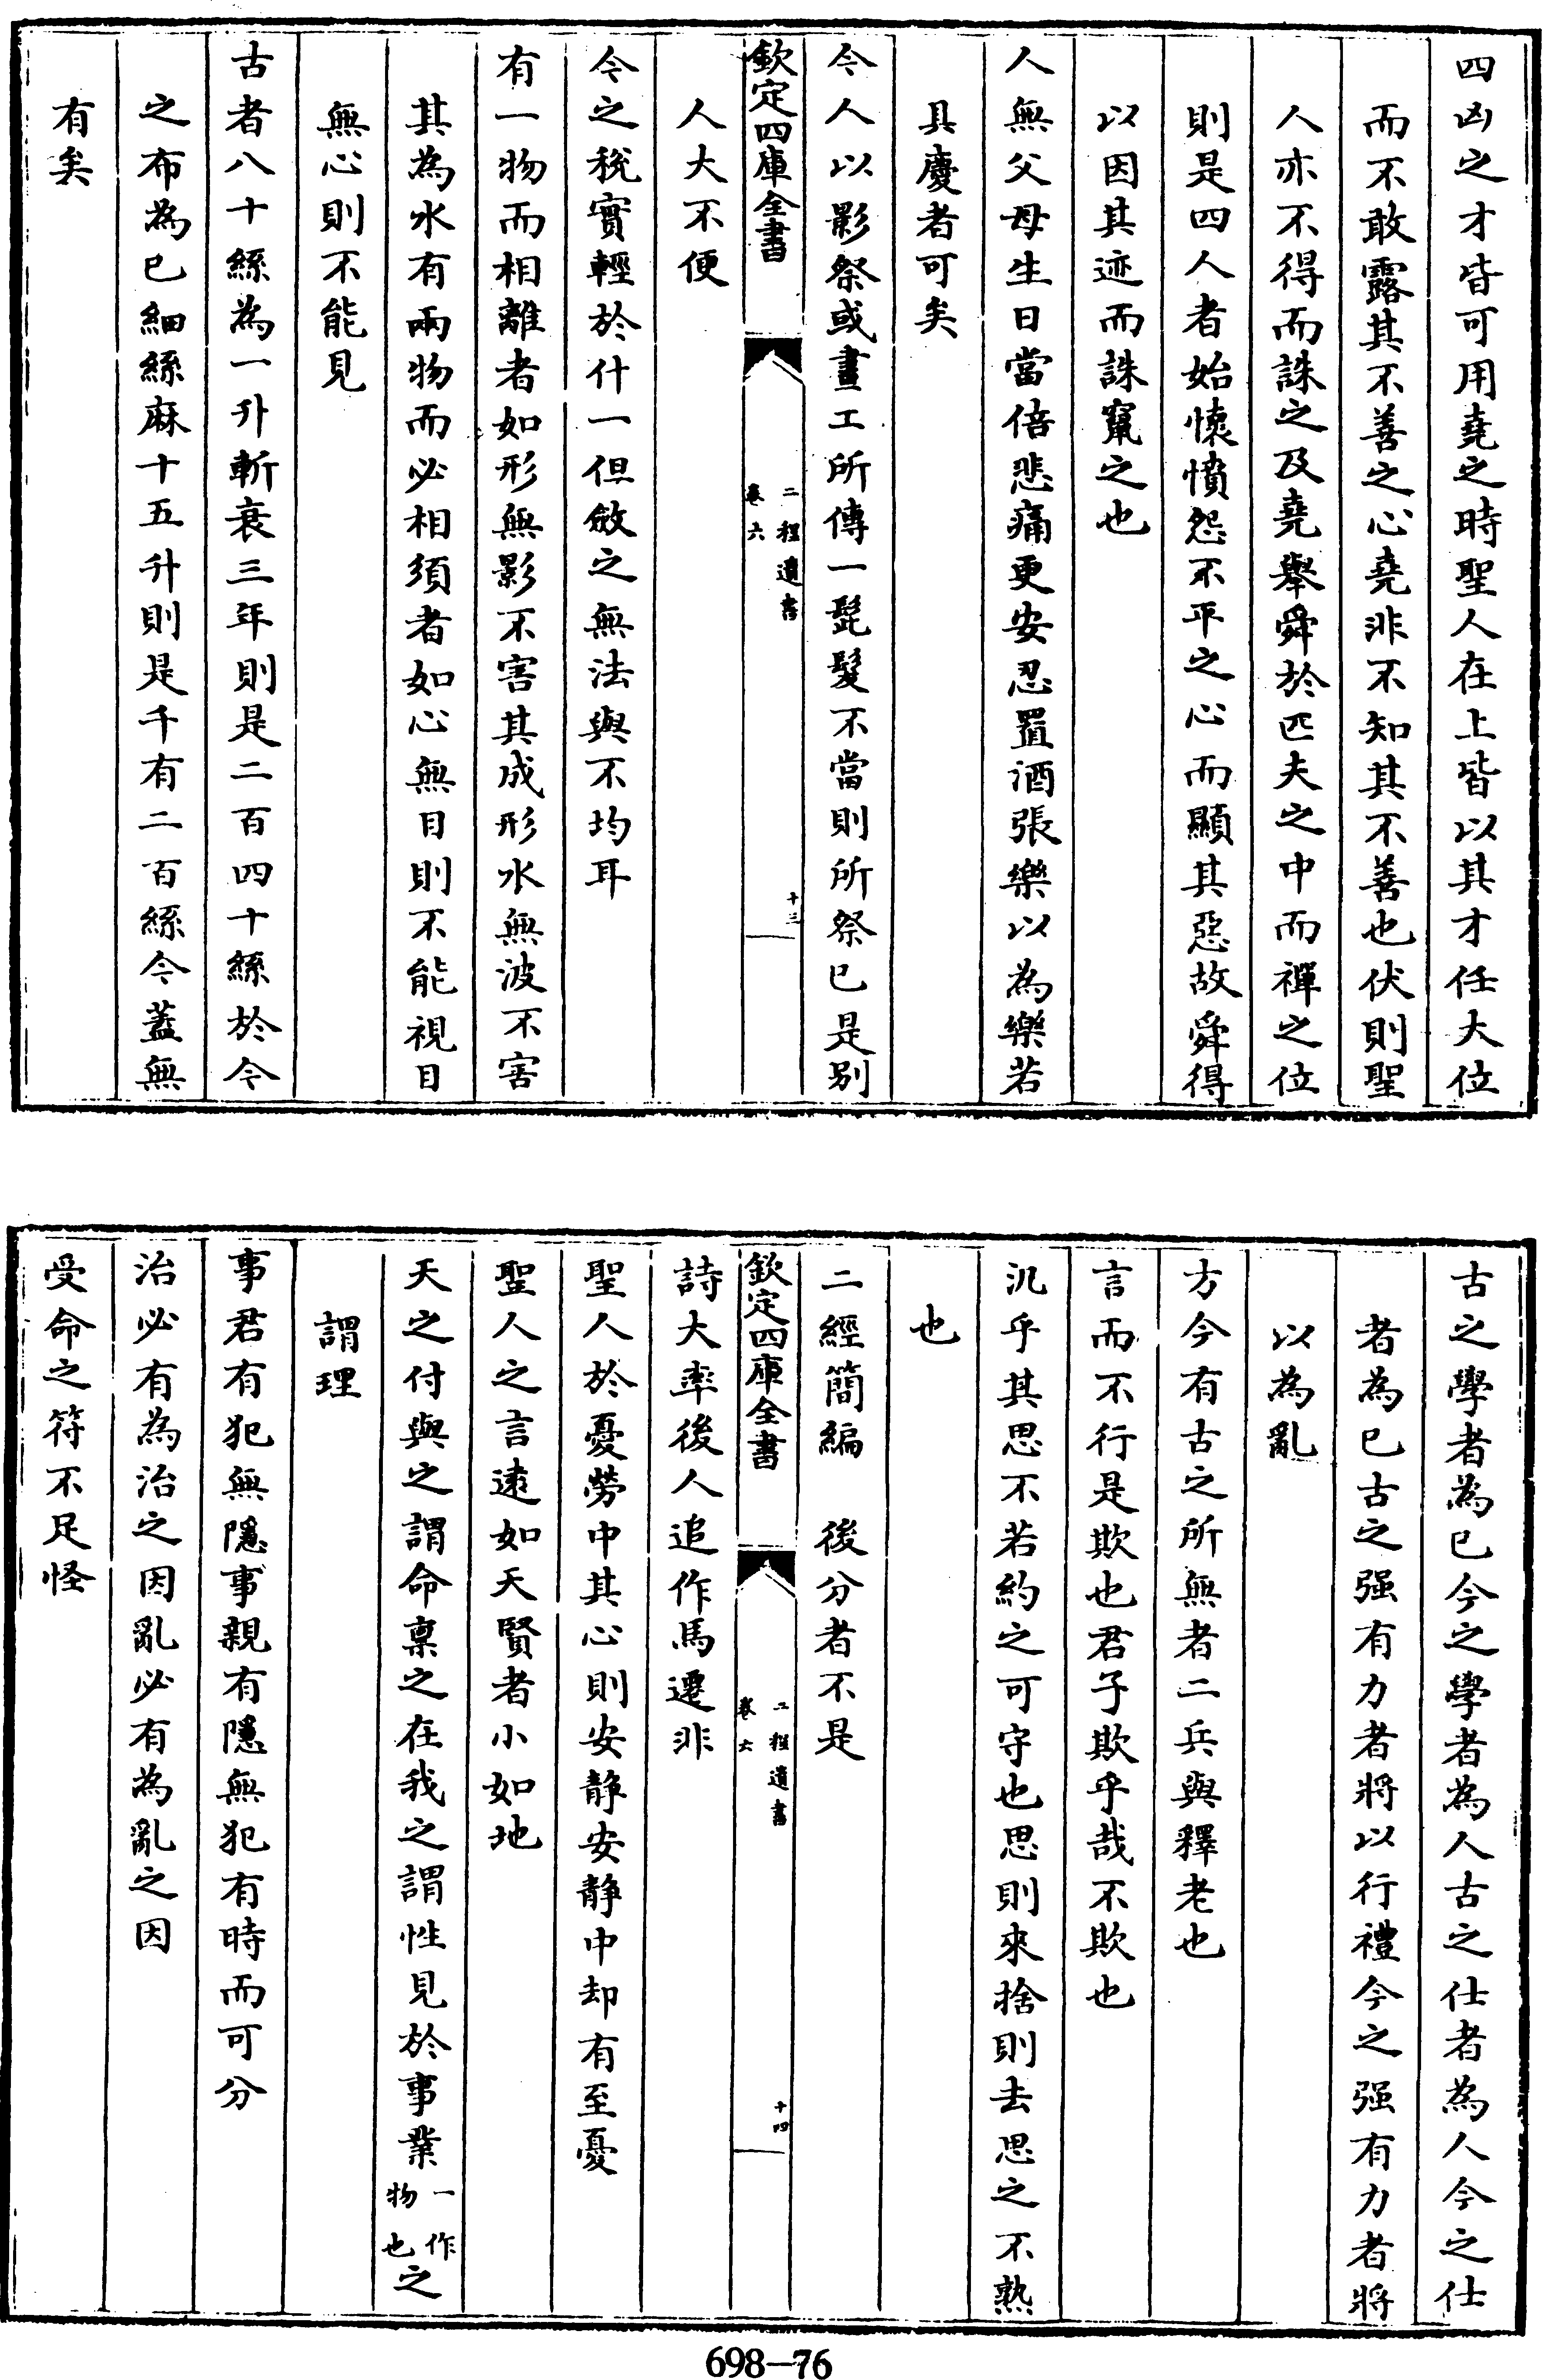 四凶之才皆可用堯之時聖人在上皆以其才任大位
而不敢露其不善之心堯非不知其不善也伏則聖
人亦不得而誅之及堯舉舜於匹夫之中而禪之位
則是四人者始懷憤怨不平之心而顯其惡故舜得
以因其迹而誅竄之也
人無父母生日當倍悲痛更安忍置酒張樂以為樂若
具慶者可矣
今人以影祭或畫工所傳一髭髮不當則所祭已是别
欽定四庫全書
二程遺書
卷六
十三
人大不便
今之稅實輕於什一但斂之無法與不均耳
有一物而相離者如形無影不害其成形水無波不害
其為水有兩物而必相須者如心無目則不能視目
無心則不能見
古者八十絲為一升斬衰三年則是二百四十絲於今
之布為已細絲麻十五升則是千有二百絲今蓋無
有矣
古之學者為已今之學者為人古之仕者為人今之仕
者為已古之强有力者將以行禮今之强有力者將
以為亂
方今有古之所無者二兵與釋老也
言而不行是欺也君子欺乎哉不欺也
汎乎其思不若約之可守也思則來捨則去思之不熟
也
二經簡編　後分者不是
欽定四庫全書
二程遺書
卷六
十四
詩大率後人追作馬遷非
聖人於憂勞中其心則安靜安靜中却有至憂
聖人之言遠如天賢者小如地
天之付與之謂命稟之在我之謂性見於事業一作物也之
謂理
事君有犯無隱事親有隱無犯有時而可分
治必有為治之因亂必有為亂之因
受命之符不足怪
698—76